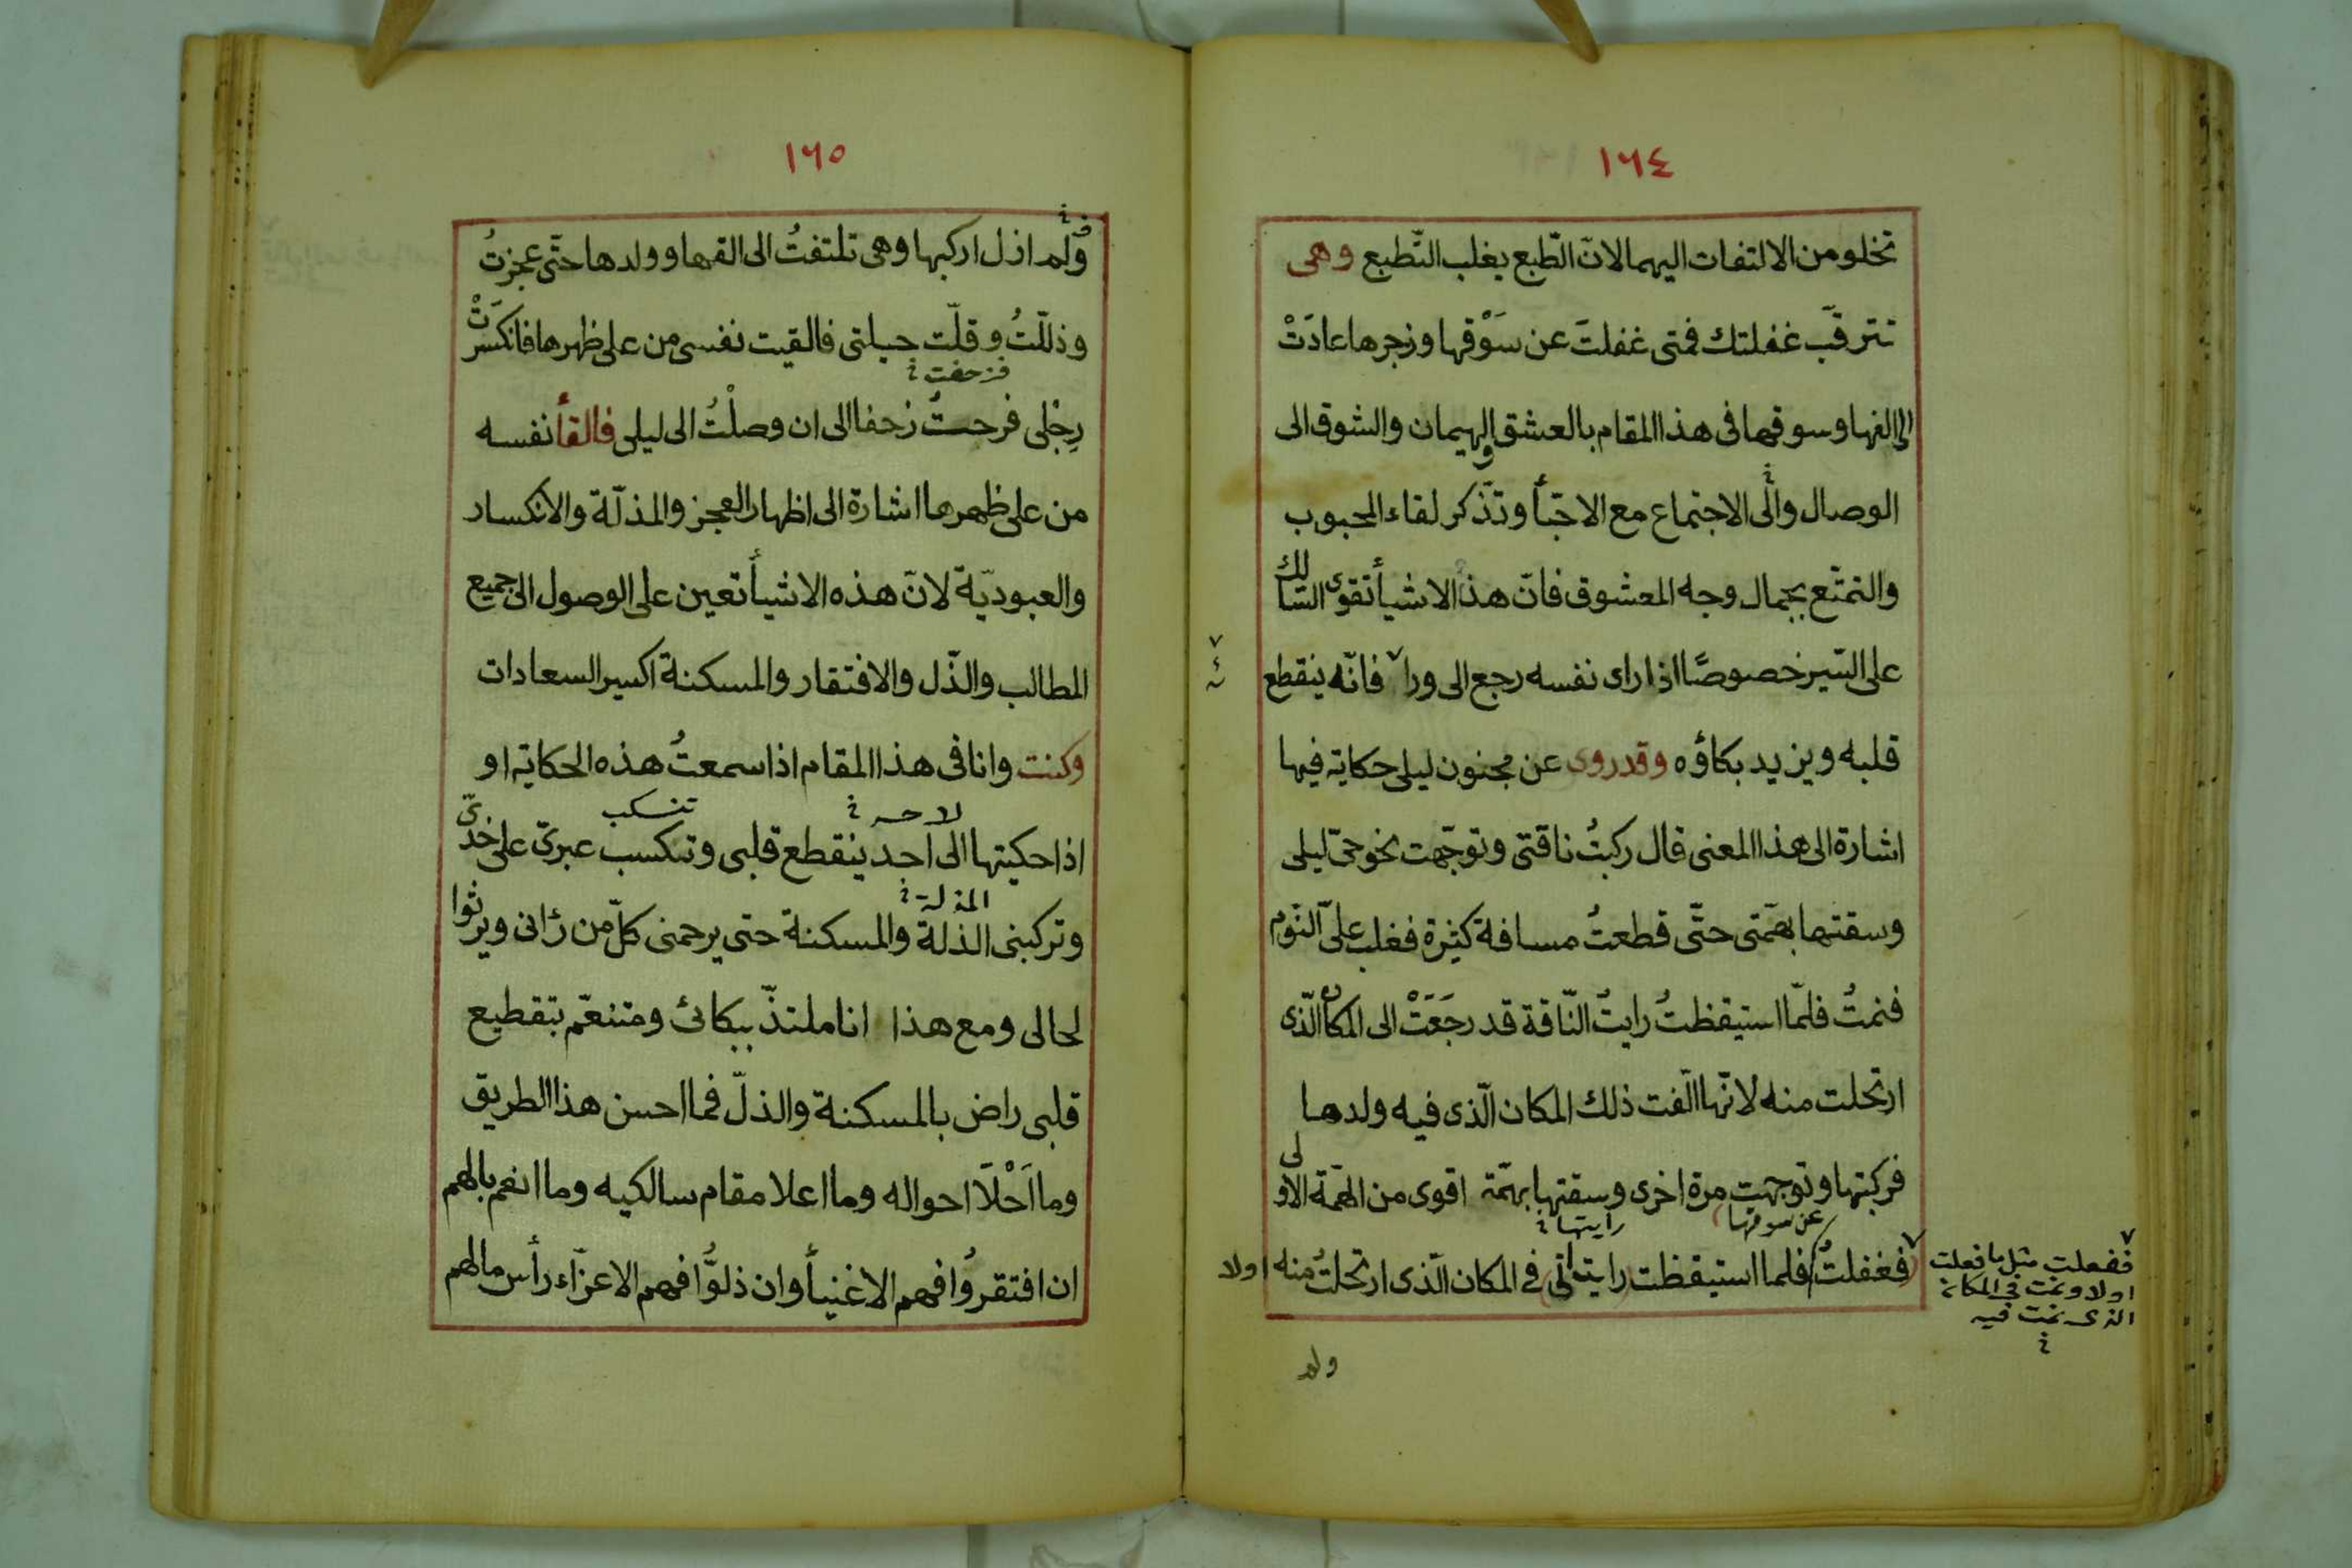 ١٦٤
تخلو من الالتفات اليهما لانّ الطّبع يغلب التّطبع وهى
تترقّب غفلتك فمتى غفلتَ عن سَوْقها وزجرها عادَتْ
الى الفها وسوقها فى هذا المقام بالعشق والهيمان والشوق الى
الوصال والى الاجتماع مع الاحبّأ وتذّكر لقاء المحبوب
والتمتّع بجمال وجه المعشوق فانّ هذه الاشيأ تقوى السّالك
على السّير خصوصًا اذا راى نفسه رجع الى ورا فانّه ينقطع
قلبه ويزيد بكاؤه وقد روى عن مجنون ليلى حكاية فيها
اشارة الى هذا المعنى قال ركبتُ ناقتى وتوجّهت نحو حىّ ليلى
وسقتها بهمّتى حتّى قطعتُ مسافة كثيرة فغلب علىّ النّوم
فنمتُ فلمّا استيقظتُ رايتُ النّاقة قد رجَعَتْ الى المكان الّذى
ارتحلت منه لانّها الّفت ذلك المكان الّذى فيه ولدها
فركبتها وتوجهت مرة اخرى وسقتها بهمّة اقوى من الهمّة الاولى
عن سوقها رايتها
فغفلتُ فلما استيقظت رايت انى فى المكان الّذى ارتحلتُ منه اولا
ففعلت مثل ما فعلت
اولا ونمت فى المكان
الذى نمت فيه
ولم
١٦٥
ولم ازل اركبها وهى تلتفتُ الى الفها وولدها حتّى عجزتُ
وذللّتُ وقلّت حيلتى فالقيت نفسى من على ظهرها فانكسَرَتْ
فزحفت
رِجْلى فرحتُ زحفا الى ان وصلْتُ الى ليلى فالقأ نفسه
من على ظهرها اشارة الى اظهار العجز والمذلّة والانكسار
والعبوديّة لانّ هذه الاشيأ تعين على الوصول الى جميع
المطالب والذّل والافتقار والمسكنة اكسير السعادات
وكنت وانا فى هذا المقام اذا سمعتُ هذه الحكاية او
لاحد تنسكب
اذا حكيتها الى احد ينقطع قلبى وتنكسب عبرتى على خدّىّ
المذلة
وتركبنى الذلة والمسكنة حتى يرحمنى كلّ من رٰانى ويرثوا
لحالى ومع هذا انا ملتذّ ببكائى ومتنعّم بتقطيع
قلبى راض بالمسكنة والذلّ فما احسن هذا الطريق
وما اَحْلَا احواله وما اعلا مقام سالكيه وما انعم بالهم
ان افتقروُا فهم الاغنيأ وان ذلوُّا فهم الاعزّاء رأس مالهم